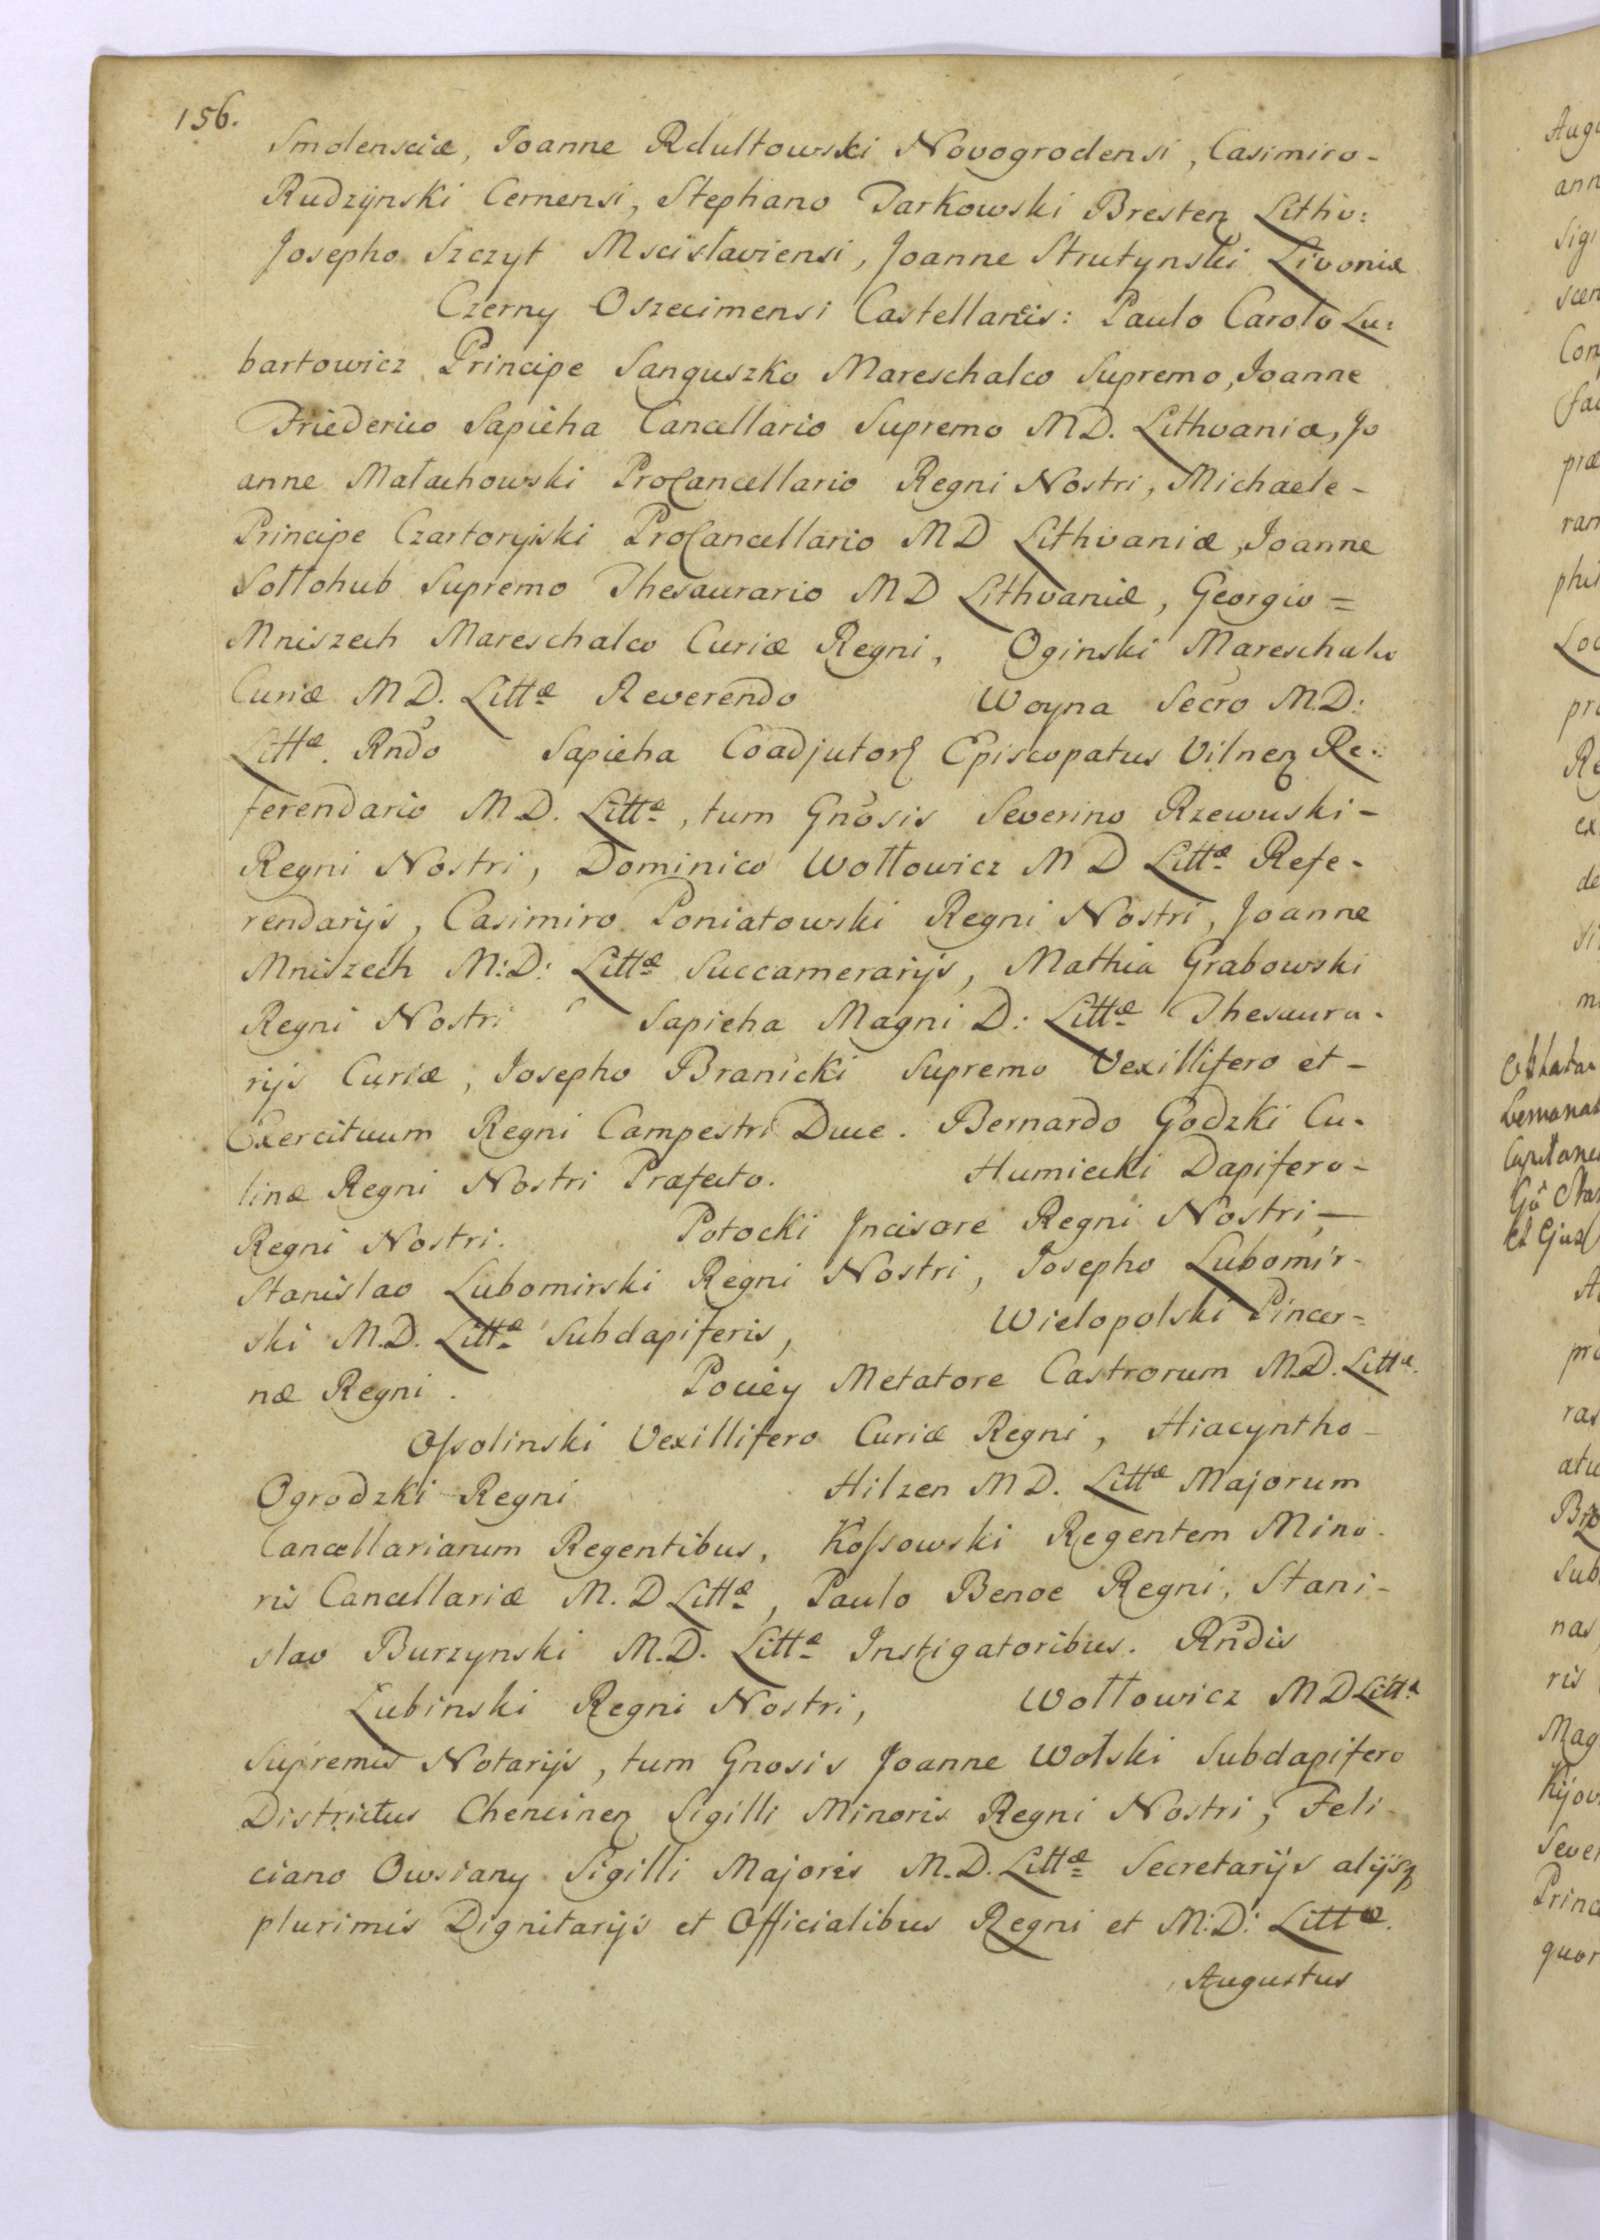 156.
Smolensciæ, Joanne Rdultowski Novogrodensi, Casimiro-
Rudzÿnski Cernensi, Stephano Tarkowski Bresten Lithv:
Josepho Szczyt Mscisłaviensi, Joanne Strutynski Livoniæ
Czerny Oszecimensi Castellanis: Paulo Carolo Lu:
bartowicz Principe Sanguszko Mareschalco Supremo, Joanne
Friederico Sapieha Cancellario Supremo MD. Lithvaniæ, Jo
anne Małachowski ProCancellario Regni Nostri, Michaele-
Principe Czartoryiski ProCancellario MD Lithvaniæ, Joanne
Sołłohub Supremo Thesaurario MD Lithvaniæ, Georgio =
Mniszech Mareschalco Curiæ Regni, Oginski Mareschalco
Curiæ MD. Littæ Reverendo Woyna Secro M.D:
Littæ. Rndo Sapieha Coadjutore Episcopatus Vilnen Re:
ferendario MD. Littæ, tum Gnosis Severino Rzewuski-
Regni Nostri, Dominico Wołłowicz MD Littæ Refe-
rendarijs, Casimiro Poniatowski Regni Nostri, Joanne
Mniszech M:D: Littæ Succamerarijs, Mathia Grabowski
Regni Nostri Sapieha Magni D: Littæ Thesaura-
rijs Curiæ, Josepho Branicki Supremo Vexillifero et-
Exercituum Regni Campestri Duce. Bernardo Godzki Cu-
linæ Regni Nostri Præfecto. Humiecki Dapifero-
Regni Nostri. Potocki Incisore Regni Nostri,-
Stanislao Lubomirski Regni Nostri, Josepho Lubomir-
ski M.D. Littæ Subdapiferis, Wielopolski Pincer-
næ Regni. Pociey Metatore Castrorum M.D. Littæ.
Ossolinski Vexillifero Curiæ Regni, Hiacyntho-
Ogrodzki Regni Hilzen MD. Littæ Majorum
Cancellariarum Regentibus, Kossowski Regentem Mino-
ris Cancellariæ M.D Littæ, Paulo Benoe Regni, Stani-
slao Burzynski M.D. Littæ Instigatoribus. Rndis
Lubinski Regni Nostri, Wołłowicz MD Littæ
Supremis Notarijs, tum Gnosis Joanne Wolski Subdapifero
Districtus Chencinen Sigilli Minoris Regni Nostri, Feli-
ciano Owsiany Sigilli Majoris M.D. Littæ Secretarijs alijsq
plurimis Dignitarijs et Officialibus Regni et M:D: Littæ.
Augustus